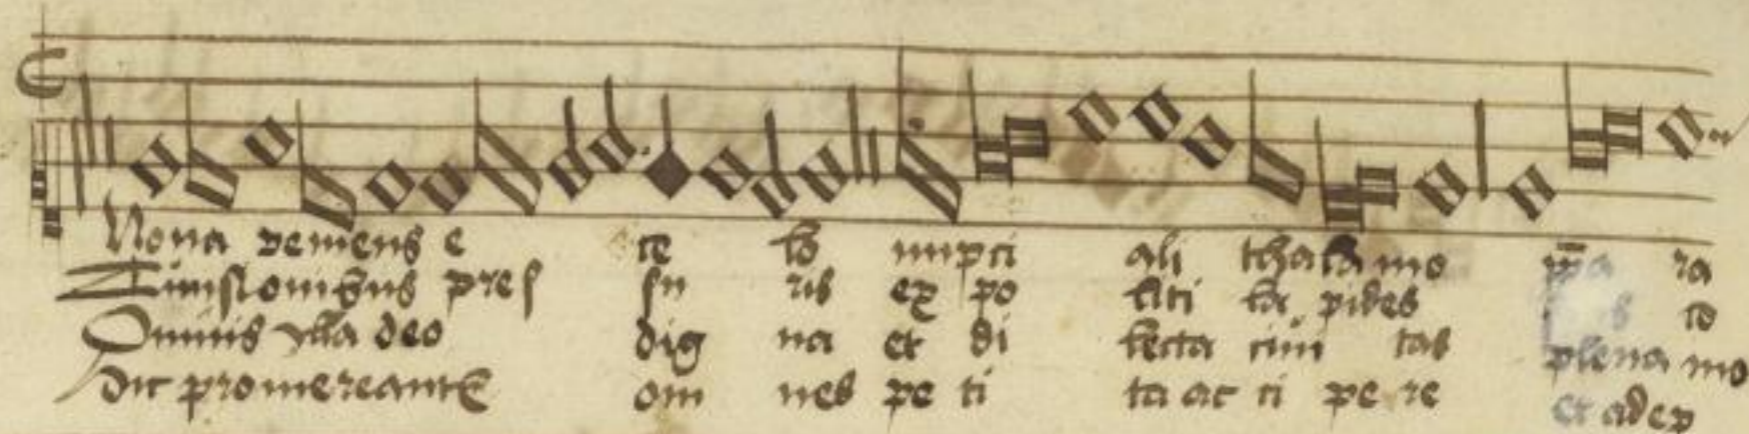 Nova veniens e ce lo nupci ali thalamo p̄a ra
Tunsionibus pres su ris ex po liti la pides
Omnis illa deo dig na et di lecta civi tas plena mo
Hic promereant̄ om nes pe ti ta ac ci pe re et adep